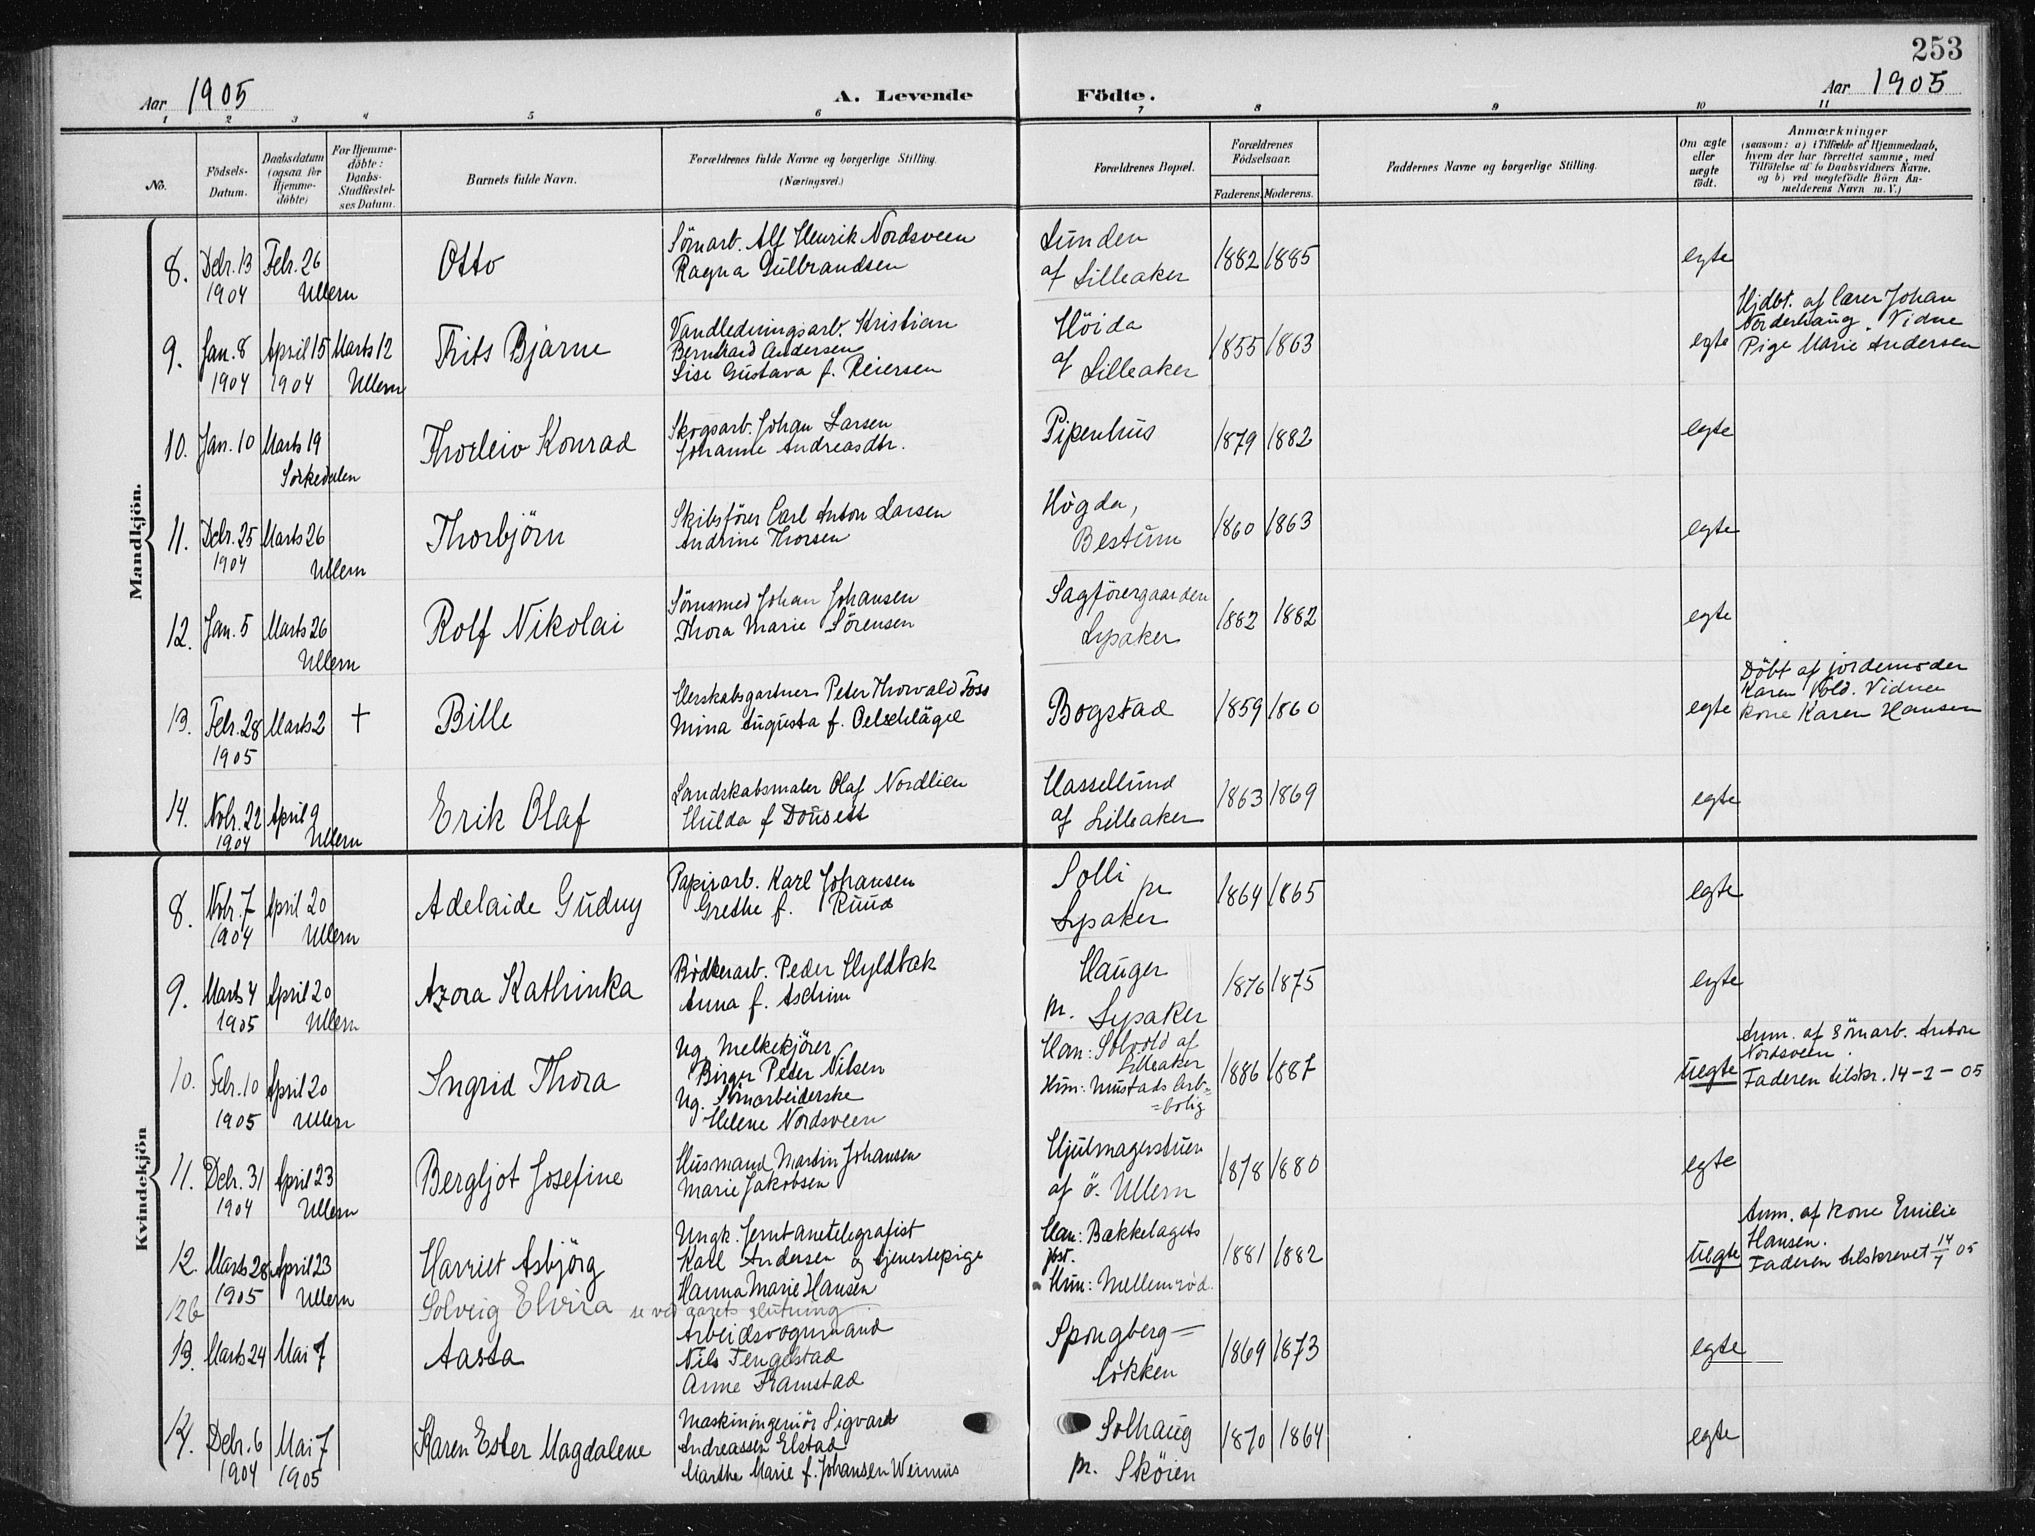 253
Aar 1905
A. Levende Födte.
Aar 1905
1 2 3 4 5 6 7 8 9 10 11
No.
Födsels-Datum.
Daabsdatum (ogsaa for Hjemme-döbte)
For Hjemme-döbte: Daabs-Stadfæstel-ses Datum.
Barnets fulde Navn.
Forældrenes fulde Navne og borgerlige Stilling. (Næringsvei.)
Forældrenes Bopæl.
Forældrenes Födselsaar.
Faderens. Moderens.
Faddernes Navne og borgerlige Stilling.
Om ægte eller uægte födt.
Anmærkninger
(saasom: a) i Tilfælde af Hjemmedaab,
hvem der har forrettet samme, med
Tilföielse af to Daabsvidners Navne.
og b) ved uægtefödte Börn An-
melderens Navn m. V.)
Mandkjön.
8. Debr. 13 1904 Febr. 26 Ullern
Otto
Sömarb. Alf Henrik Nordsveen
Ragna Gulbrandsen
Lunden
af Lilleaker
1882 1885 egte
9. Jan. 8 1904 April 15 1904 Marts 12 Ullern
Frits Bjarne
Vandledningsarb. Kristian
Bernhard Andersen
Lise Gustava f. Reiersen
Höida
af Lilleaker
1855 1863 egte
Hjdbt. af lærer Johan
Norderhaug. Vidne
Pige Marie Andersen
10. Jan. 10 Marts 19 Sørkedalen
Thorleiv Konrad
Skogsarb. Johan Larsen
Johanne Andreasdtr.
Pipenhus
1879 1882 egte
11. Debr. 25 1904 Marts 26 Ullern
Thorbjörn
Skibsfører Carl Anton Larsen
Andrine Thorsen
Høgda,
Bestum
1860 1863 egte
12. Jan. 5 Marts 26 Ullern
Rolf Nikolai
Sömsmed Johan Johansen
Thora Marie Sörensen
Sagförergaarden
Lysaker
1882 1882 egte
13. Febr. 28 1905 Marts 2 †
Bille
Herskabsgartner Peter Thorvald Foss
Mina Augusta f. Oelschlägel
Bogstad
1859 1860 egte
Döbt af jordemoder
Karen Vold. Vidne
kone Karen Hansen
14. Novbr. 22 1904 April 9 Ullern
Erik Olaf
Landskabsmaler Olaf Nordlien
Hulda f Dousett
Hassellund
af Lilleaker
1863 1869 egte
Kvindekjön
8. Nobr. 7 1904 April 20 Ullern
Adelaide Gudny
Papirarb. Karl Johansen
Grethe f. Ruud
Solli pr
Lysaker
1864 1865 egte
9. Marts 4 1905 April 20 Ullern
Azora Kathinka
Bødkerarb. Peder Hyldbak
Anna f. Aschim
Hauger
pr. Lysaker
1876 1875 egte
10. Febr. 10 1905 April 20 Ullern
Ingrid Thora
Ug. Melkekjörer
Birger Peter Nilsen
Ug. Sömarbeiderske
Helene Nordsveen
Han: Solvold af
Lilleaker
Hun: Mustads Arb=
=bolig
1886 1887 uegte
Anm. af Sömarb. Anton
Nordsveen.
Faderen tilskr. 14-2-05
11. Debr. 31 1904 April 23 Ullern
Bergljot Josefine
Husmand Martin Johansen
Marie Jakobsen
Hjulmagerstuen
af ö. Ullern
1878 1880 egte
12. Marts 28 1905 April 23 Ullern
Harriet Asbjörg
Ungk. Jernbanetelegrafist
Karl Andersen & tjenestepige
Hanna Marie Hansen
Han: Bækkelagets
post.
Hun: Mellemröd.
1881 1882 uegte
Anm. af kone Emilie
Hansen.
Faderen tilskrevet 14/7 05
12b Solveig Elvira se ved aarets slutning
13. Marts 24 Mai 7
Aasta
Arbeidsvognmand
Nils Tengelstad
Anne Framstad
Spongberg=
løkken
1869 1873 egte
14. Debr. 6 1904 Mai 7 1905
Karen Ester Magdalene
Maskiningeniör Sigvard
Andreassen Elstad
Marthe Marie f. Johansen Wermus
Solhaug
pr. Sköien
1870 1864 egte